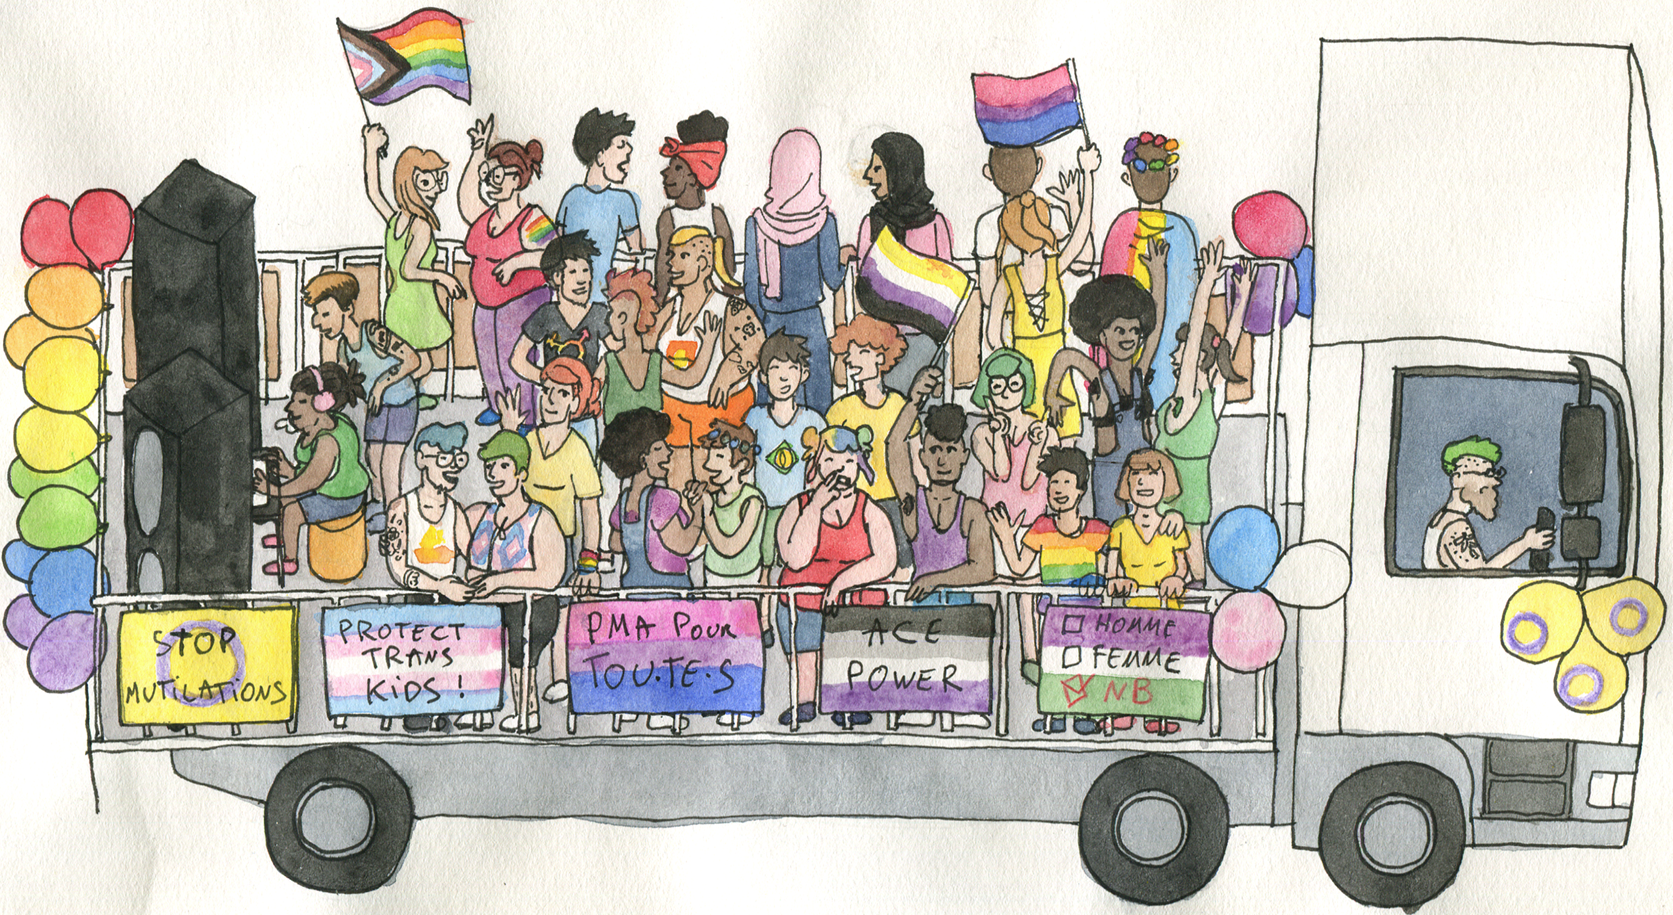 STOP
MUTILATIONS
PROTECT
TRANS
KIDS !
PMA POUR
TOU·TE·S
ACE
POWER
☐ HOMME
☐ FEMME
☑ NB